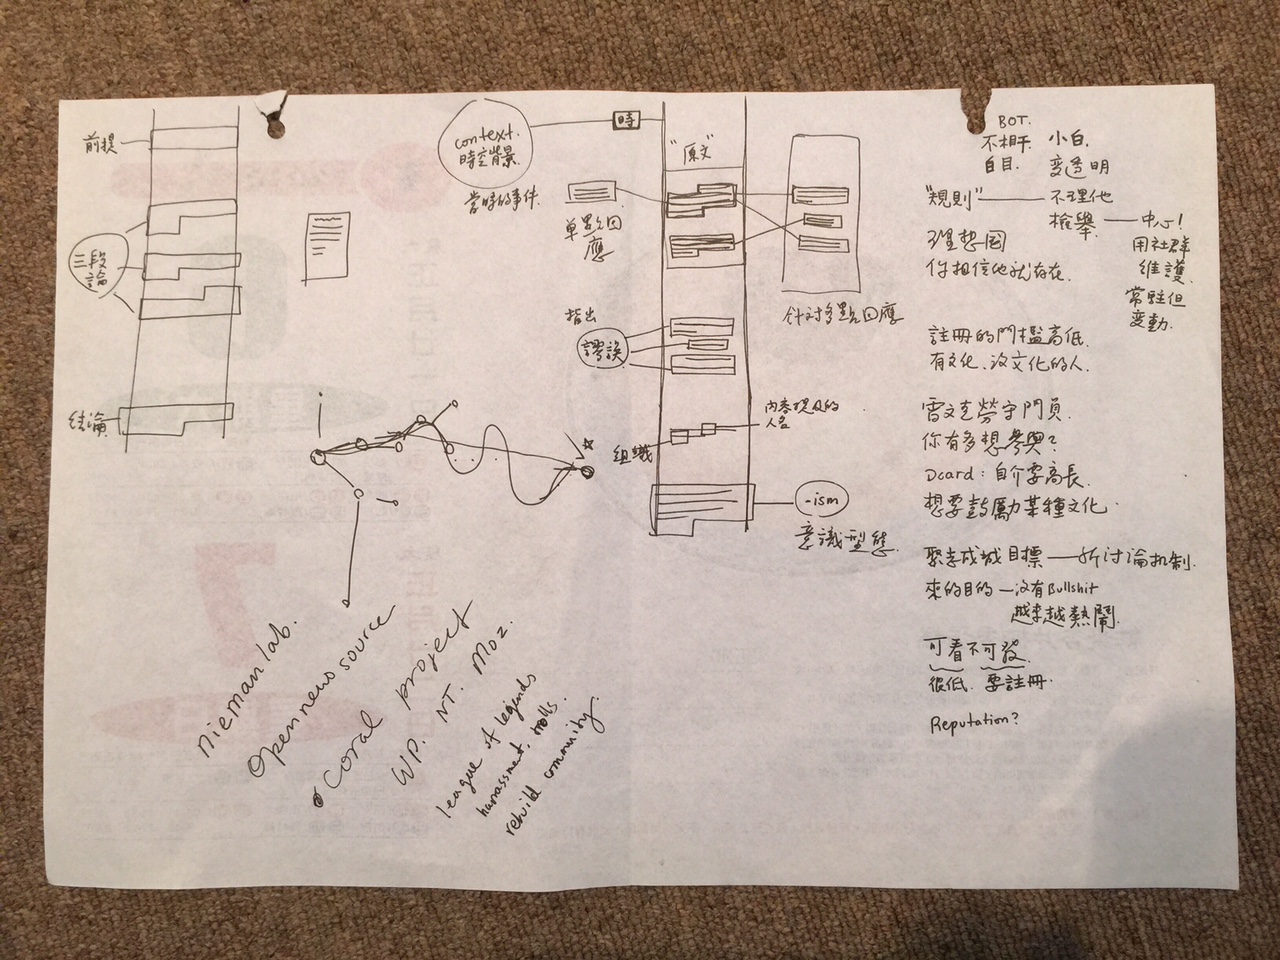 前提
三段
論
結論
context.
時空背景
當時的事件.
時
"原文"
單點回
應
針對多點回應
指出
謬誤
內容提及的
人名
組織
-ism
意識型態.
Niemanlab.
Opennewssource
Coral project
WP. NT. Moz.
league of legends
harassment, trolls.
rebuild community
BOT.
不相干. 小白.
白目. 變透明
"規則" 不理他
檢舉. 中心!
用社群
維護.
常駐但
變動.
理想國
你相信他就存在.
註冊的門檻高低.
有文化、沒文化的人.
雷文克勞守門員.
你有多想參與?
Dcard: 自介要高長.
想要鼓勵某種文化.
聚志成城目標 — 新討論机制.
來的目的 — 沒有Bullshit
越來越熱鬧.
可看不可發.
很低. 要註冊.
Reputation?